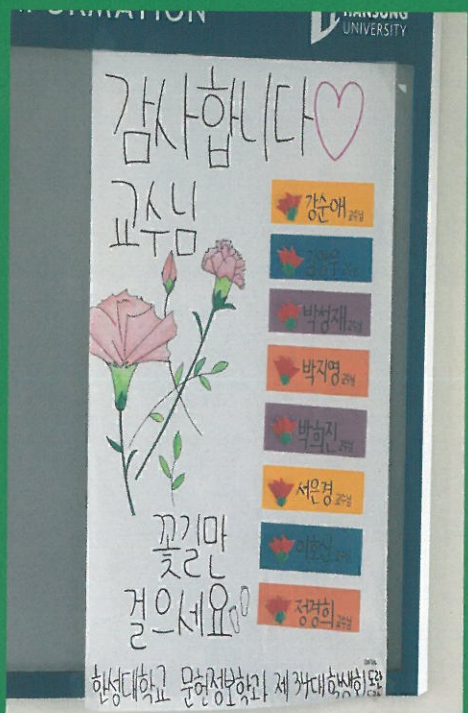 HANSUNG
UNIVERSITY
감사합니다
교수님
강순애 교수님
박성재 교수님
박지영 교수님
박희진 교수님
서은경 교수님
이호신 교수님
정경희 교수님
꽃길만
걸으세요
한성대학교 문헌정보학과 제34대 학생회